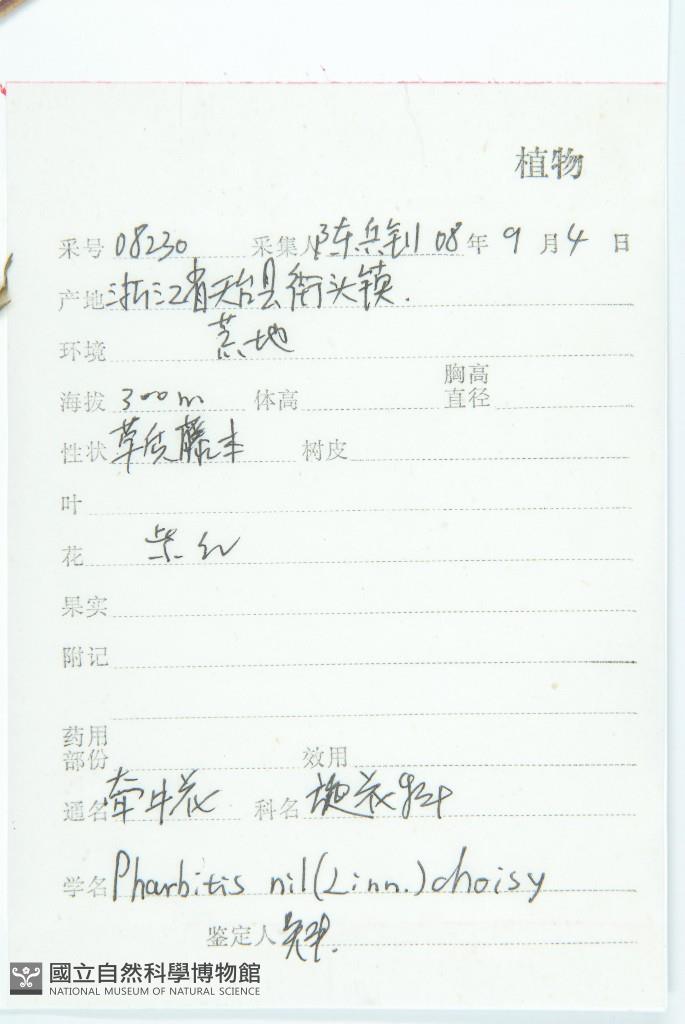 植物
采号 08230 采集人 陈兵钊 08年 9月 4日
产地 浙江省天台县街头镇.
环境 荒地
海拔 300m 体高 胸高直径
性状 草质藤本 树皮
叶
花 紫红
果实
附记
药用部份 效用
通名 牵牛花 科名 旋花科
学名 Pharbitis nil (Linn.) choisy
鉴定人
國立自然科學博物館
NATIONAL MUSEUM OF NATURAL SCIENCE